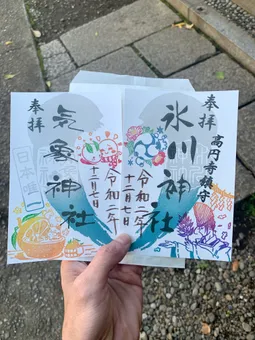 奉拝
高円寺鎮守
氷川神社
令和二年
十二月七日
奉拝
気象神社
令和二年
十二月七日